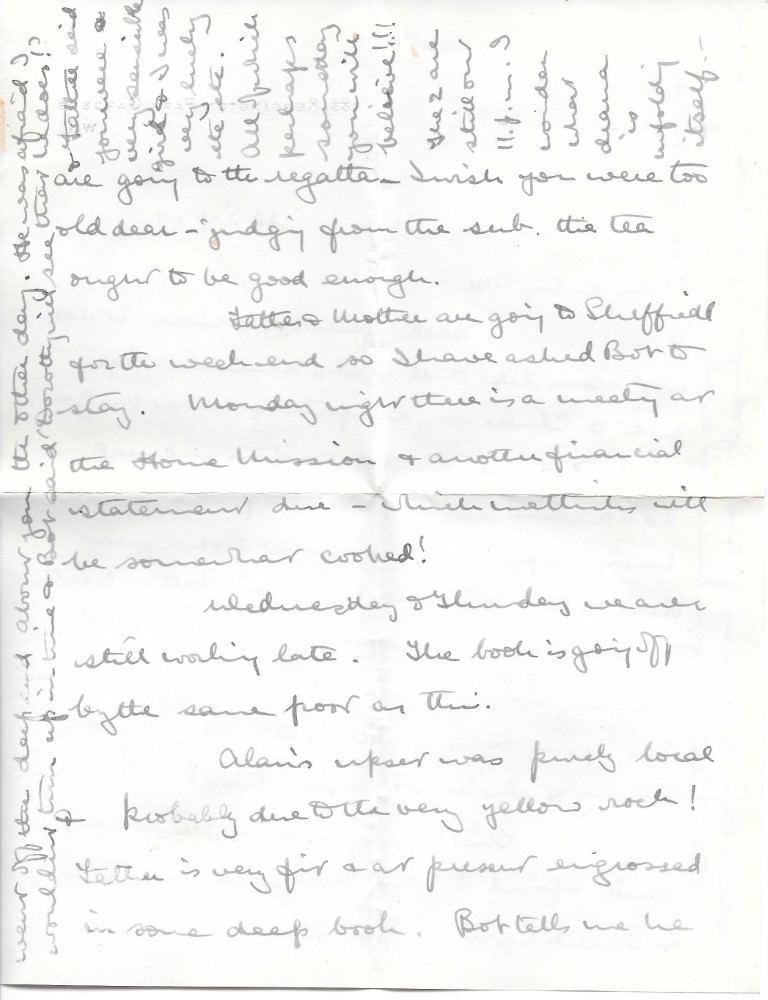 are going to the regatta – I wish you were too
old dear – judging from the sub. the tea
ought to be good enough.
Father & Mother are going to Sheffield
for the week-end so I have asked Bob to
stay. Monday night there is a meeting at
the Home Mission & another financial
statement due – which methinks will
be somewhat cooked!
Wednesday & Thursday we are
still working late. The book is going off
by the same post as this.
Alan's upset was purely local
& probably due to the very yellow rock!
Father is very fit & at present engrossed
in some deep book. Bob tells me he
went off the deep end about you the other day. He was afraid I
wouldn't turn up in time & Bob said Dorothy will see that he does!!
& Father said
you were a
very sensible
girl & I was
very lucky
etc etc.
All which
perhaps
someday
you will
believe!!!
The 2 are
still out
11.p.m. I
wonder
what
drama
is
unfolding
itself.–